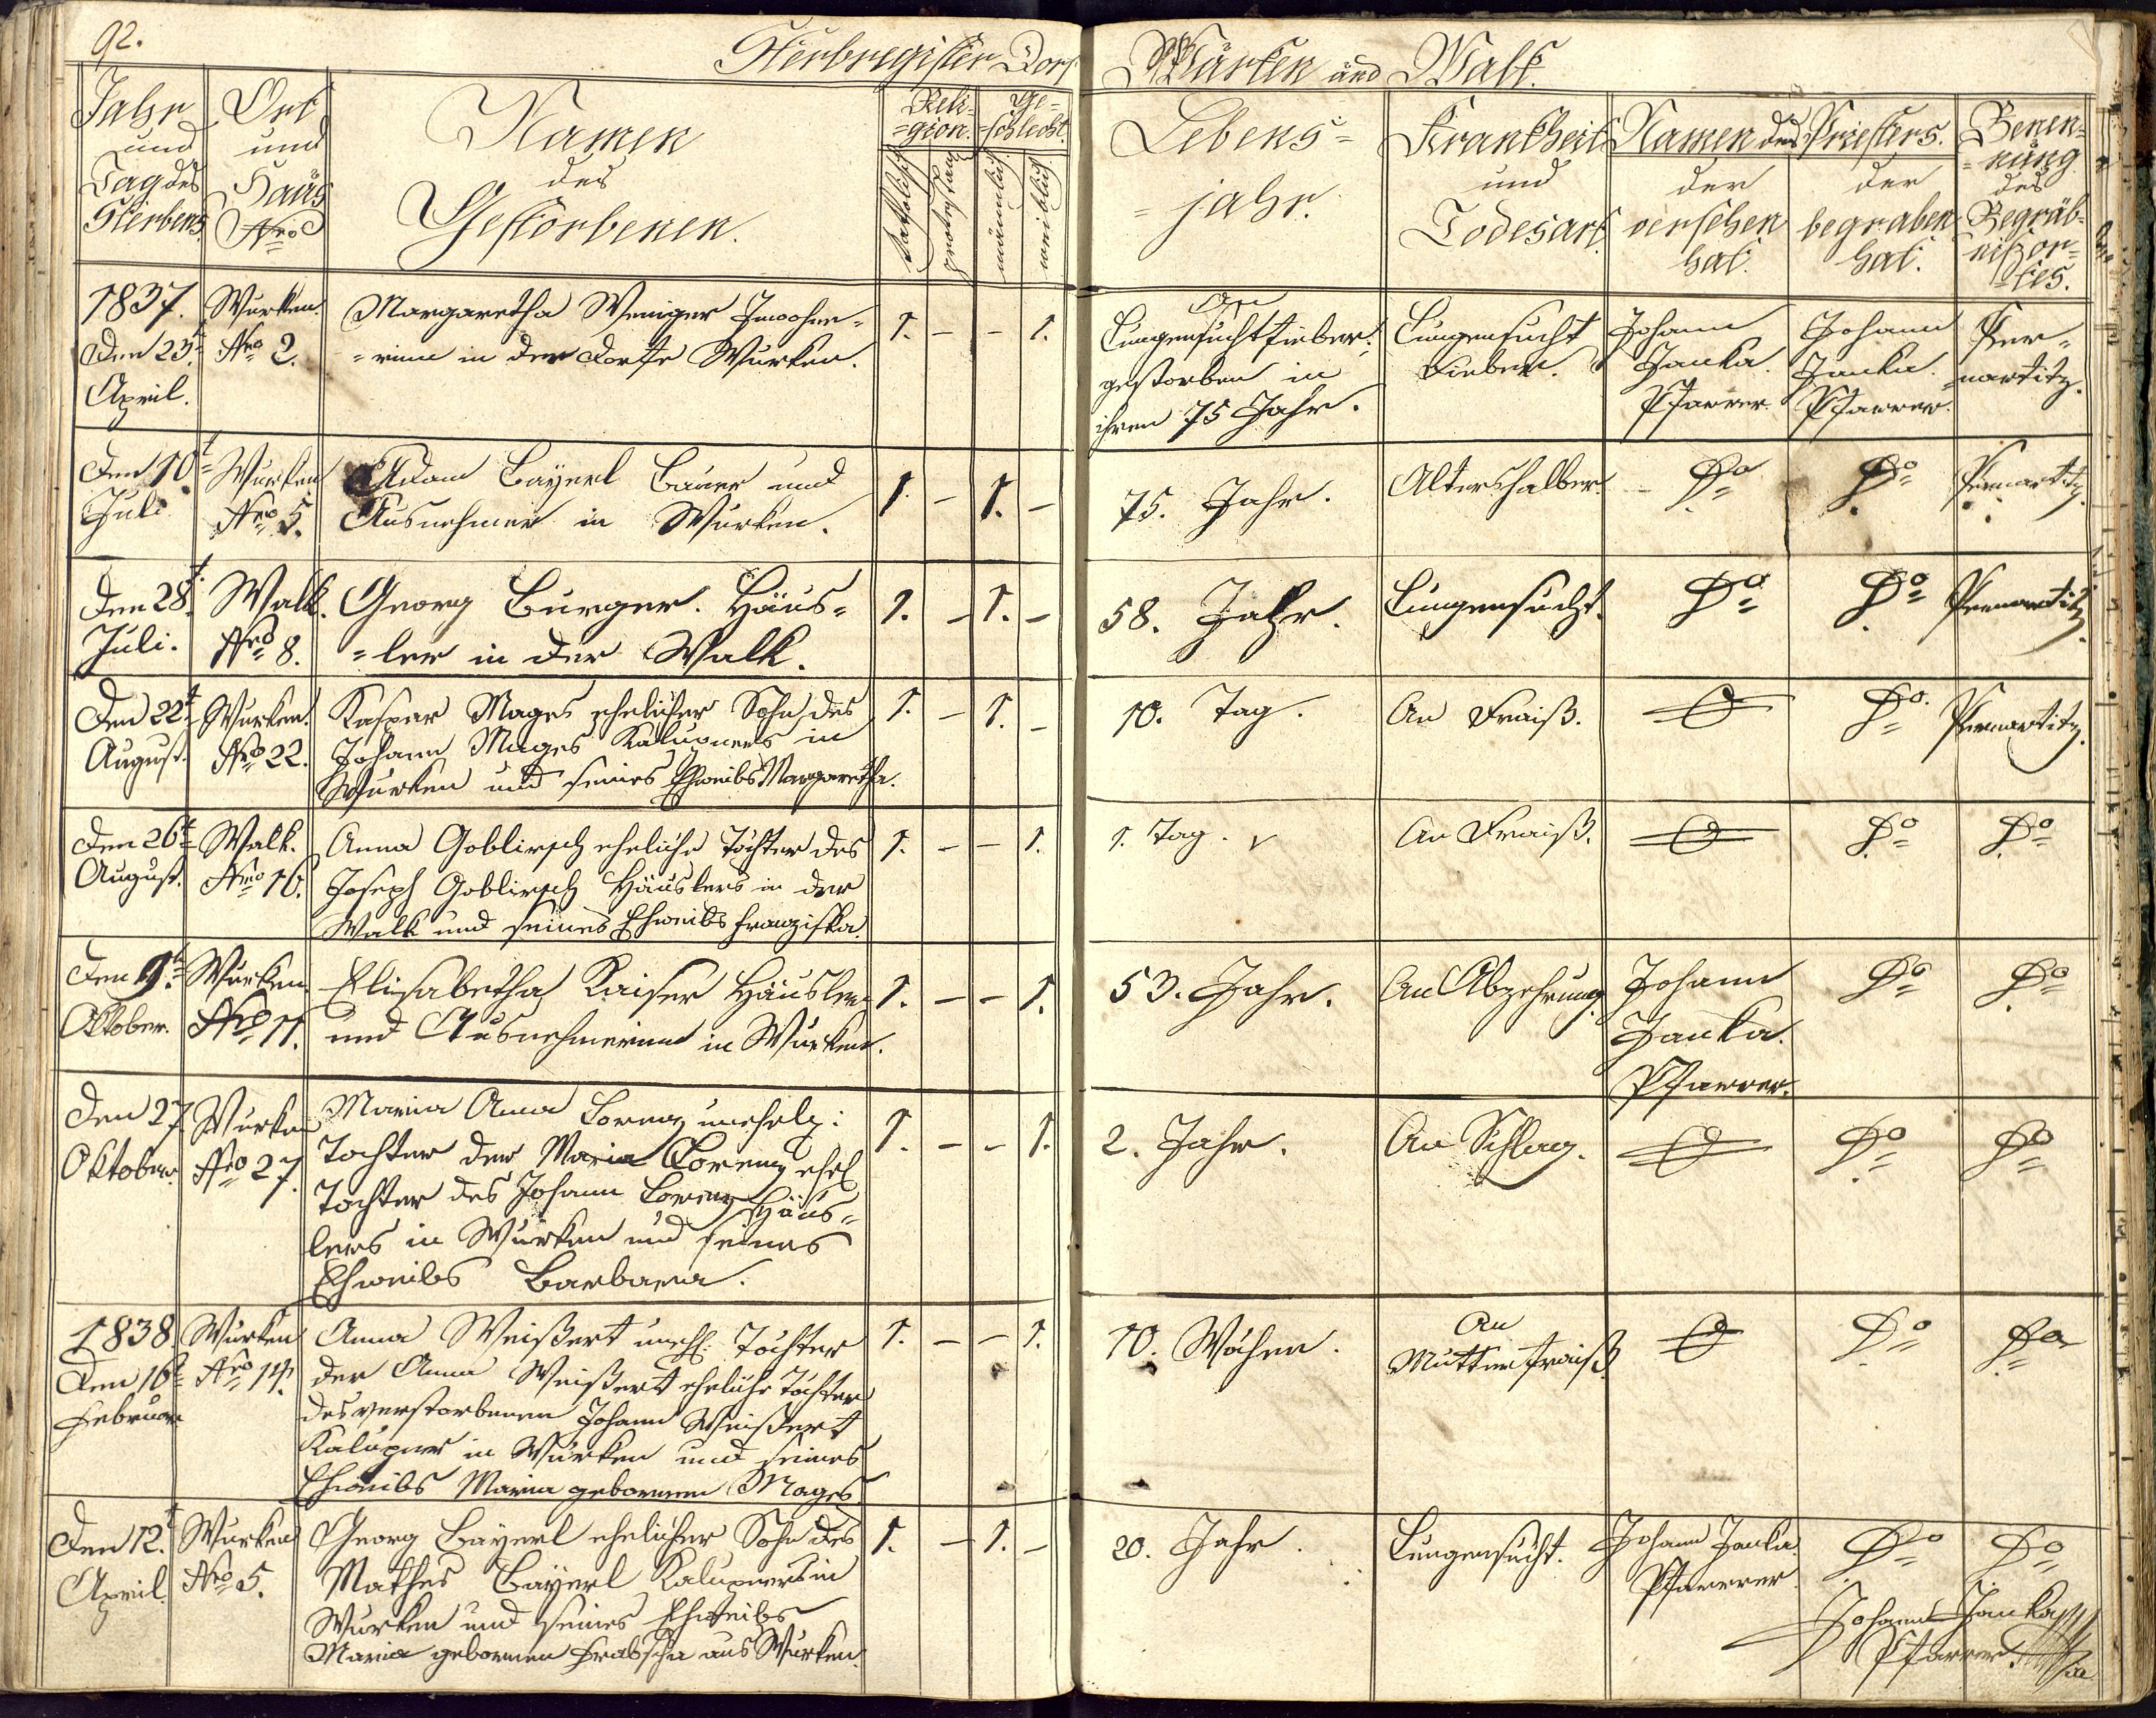 92.
Sterbregister Dorf Würken und Walk.
Jahr und Tag des Sterbens.
Ort und Haus Nro
Namen des Gestorbenen.
Reli-
=gion.
katholisch
protestan
Ge=
=schlecht.
männlich.
weiblich.
Lebens=
=jahr.
Krankheit
und
Todesart.
Namen des Priesters.
der
versehen
hat.
der
begraben
hat.
Benen=
=nung
des
Begräb=
nißor=
=tes.
1837.
Den 23t
April.
Wurken.
Nro 2.
Margaretha Weniger Inwohne=
=rinn in der Dorfe Wurken.
1. - - 1.
An
Lungensuchtfieber.
gestorben in
ihren 75 Jahr.
Lungensucht
Fieber.
Johann
Janka.
Pfarrer.
Johann
Janka.
Pfarrer.
Per=
nartitz.
Den 10t
Juli
Wurken
Nro 5.
Adam Bayerl Bauer und
Ausnehmer in Wurken.
1 - 1. -
75. Jahr.
Altershalber.
Do
Do
Pernartitz.
Den 28t
Juli.
Walk.
Nro 8.
Georg Burger. Häus=
=ler in der Walk.
1. - 1. -
58. Jahr.
Lungensucht.
Do
Do
Pernartitz.
Den 22t
August.
Wurken.
Nro 22.
Kaspar Mages ehelicher Sohn des
Johann Mages Kalupners in
Wurken und seines Ehweibs Margaretha.
1. - 1. -
10. Tag.
An Fraiß.
Do
Pernartitz.
Den 26t
August.
Walk.
Nro 16.
Anna Goblirsch eheliche Tochter des
Joseph Goblirsch Häuslers in der
Walk und seines Ehweibs Franziska.
1. - - 1.
1. Tag.
An Fraiß.
Do
Do
Den 9t
Oktober.
Wurken
Nro 11.
Elisabetha Kaiser Häusler
und Ausnehmerinn in Wurken.
1. - - 1.
53. Jahr.
An Abzehrung.
Johann
Janka.
Pfarrer.
Do
Do
Den 27.
Oktober.
Wurken
Nro 27.
Maria Anna Lorenz unehelg:
Tochter der Maria Lorenz ehel
Tochter des Johann Lorenz Häus=
lers in Wurken und seines
Ehweibs Barbara.
1. - - 1.
2. Jahr.
An Schlag.
Do
Do
1838.
Den 16t
Februar
Wurken
Nro 14.
Anna Weißert unehl: Tochter
der Anna Weißert eheliche Tochter
des verstorbenen Johann Weißert
Kalupner in Wurken und seines
Ehweibs Maria gebornnen Mages
1. - - 1.
10. Wochen.
An
Mutterfraiß.
Do
Do
Den 12t
April.
Wurken
Nro 5.
Georg Bayerl ehelicher Sohn des
Mathes Bayerl Kalupners in
Wurken und seines Ehweibs
Maria gebornnen aus Wurken.
1. - 1. -
20. Jahr.
Lungensucht.
Johann Janka.
Pfarrer.
Do
Do
Johann Janka
Pfarrer.